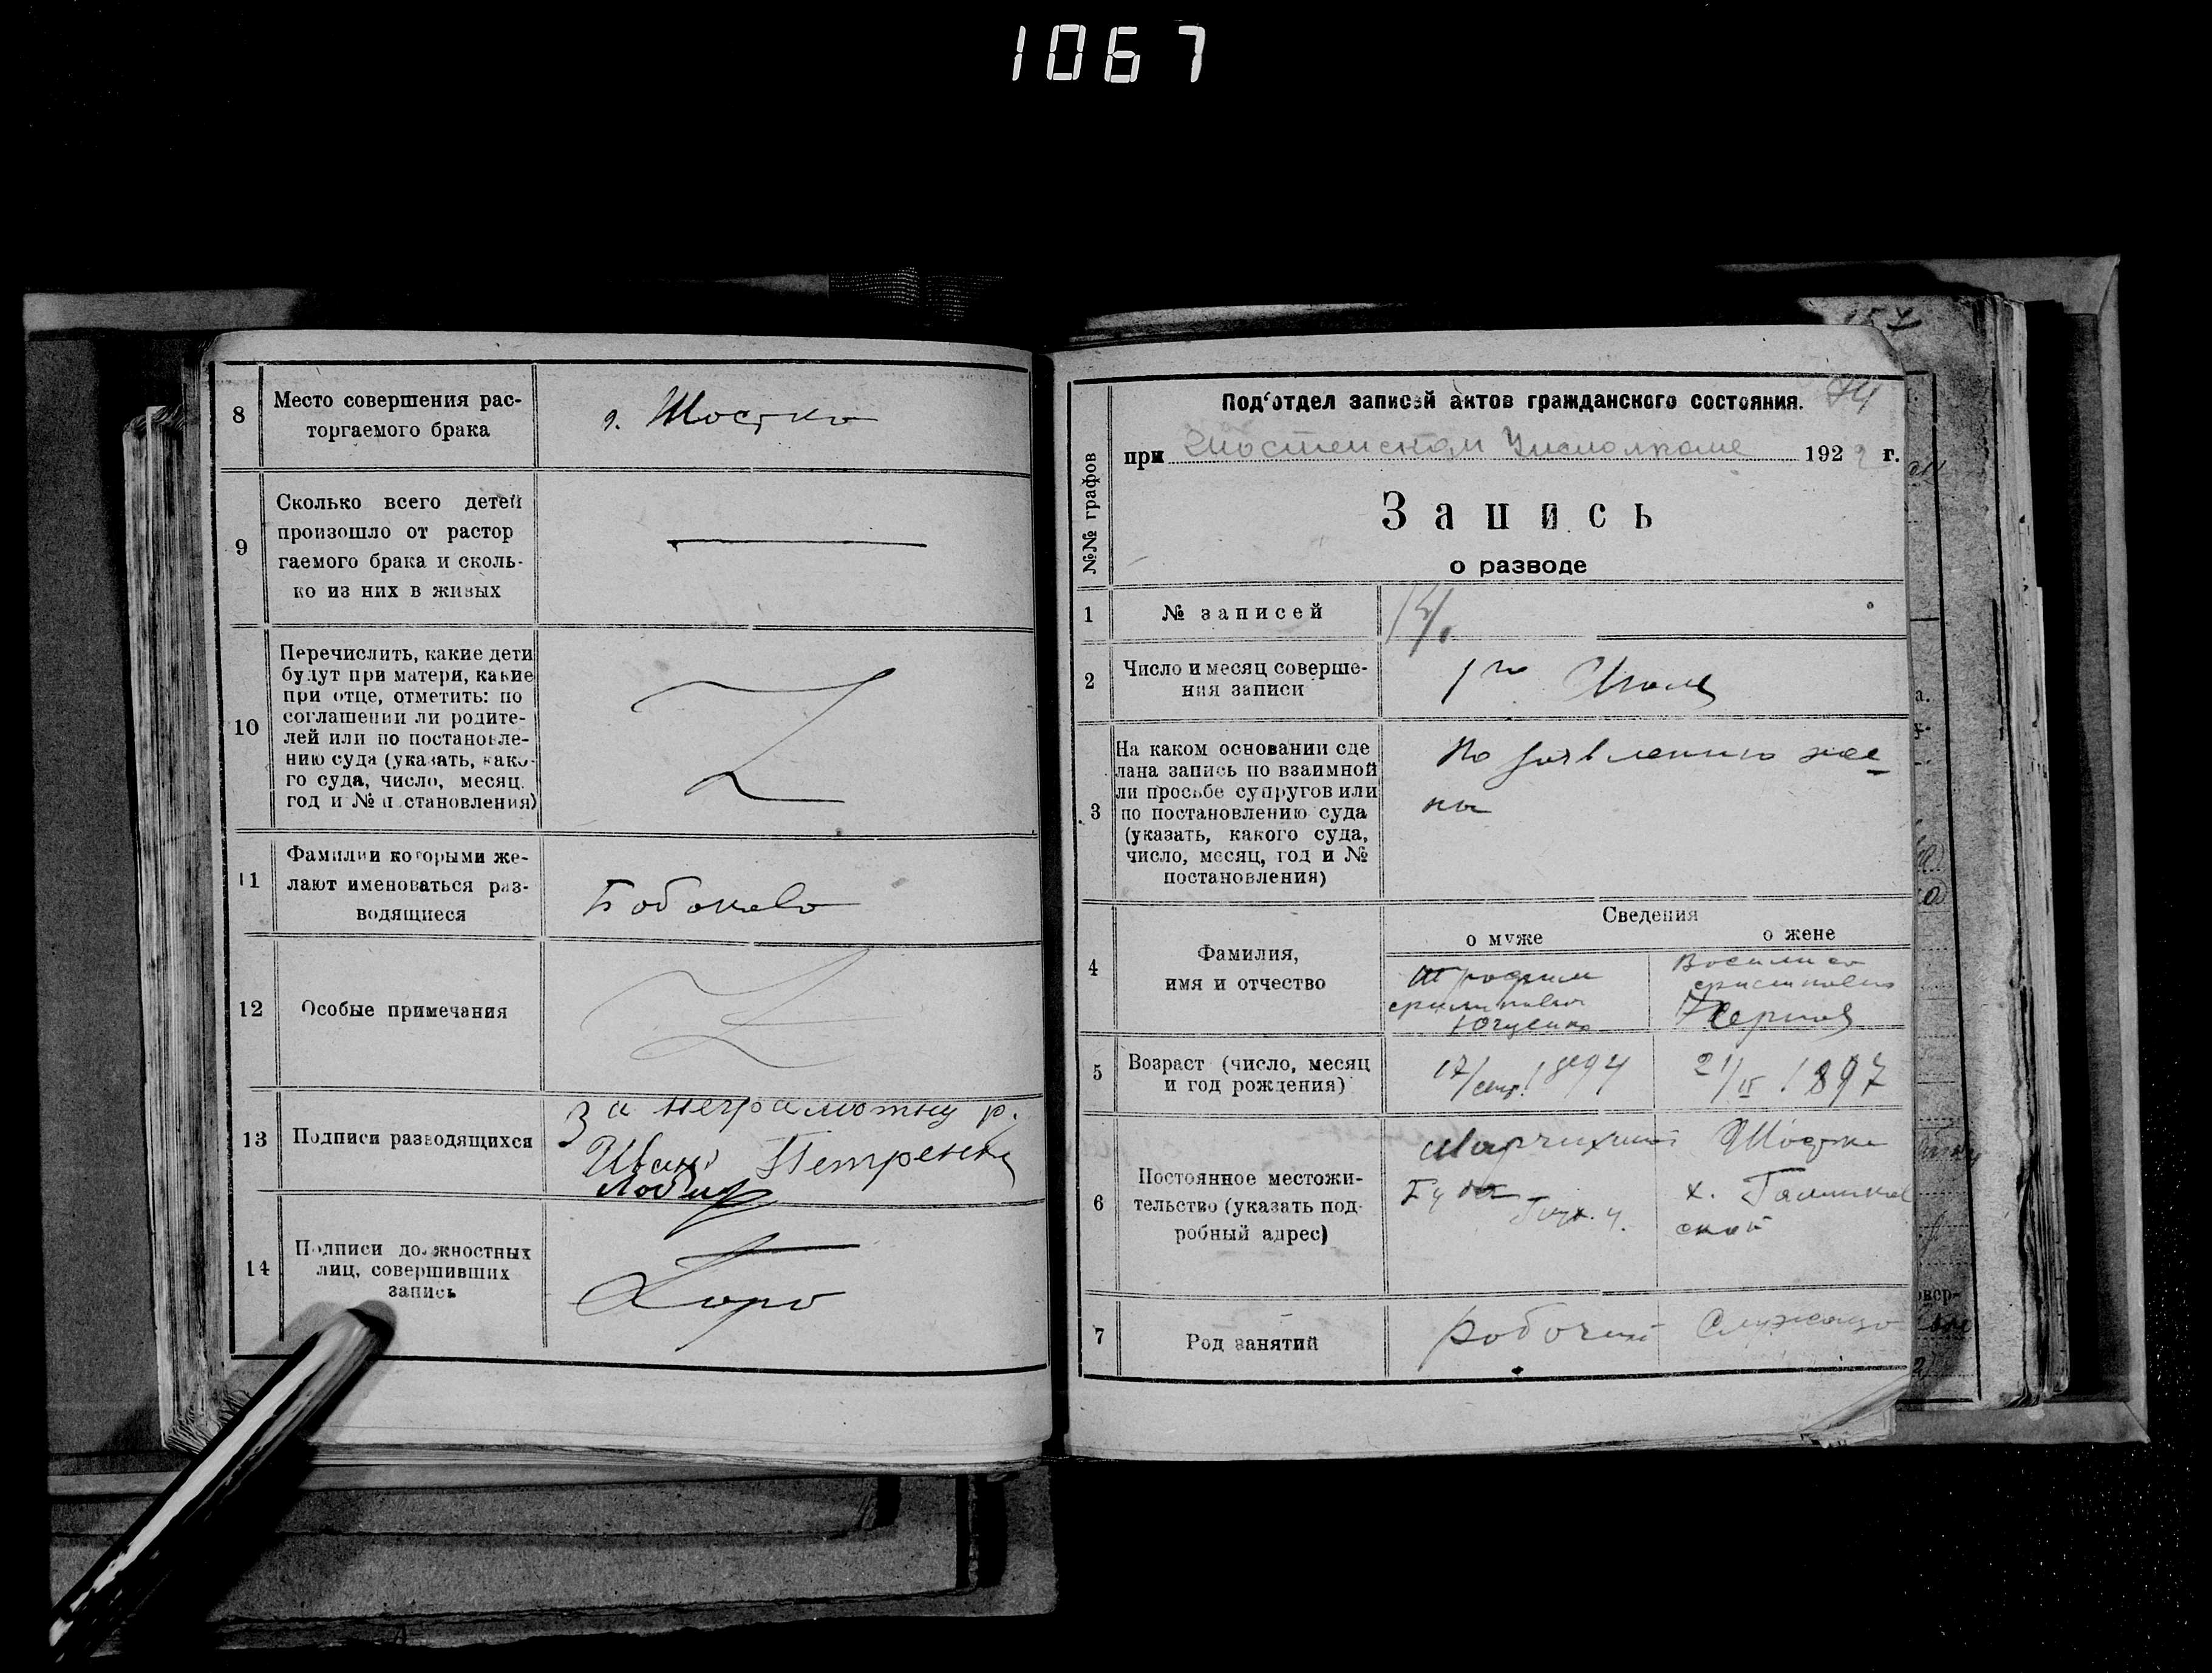 1067
8
Место совершения рас-
торгаемого брака
г. Шостка
9
Сколько всего детей
произошло от растор
гаемого брака и сколь-
ко из них в живых
10
Перечислить, какие дети
будут при матери, какие
при отце, отметить: по
соглашении ли родите-
лей или по постановле-
нию суда (указать, како-
го суда, число, месяц.
год и № п становления)
11
Фамилии которыми же-
лают именоваться раз-
водящиеся
12
Особые примечания
13
Подписи разводящихся
За неграмотну р.
Иван Петренко
14
Подписи должностных
лиц, совершивших
запись
157
74
№№ графов
Под'отдел записей актов гражданского состояния.
при Шостенском 1922 г.
Запись
о разводе
1
№ записей
2
Число и месяц соверше-
ния записи
1го Июля
3
На каком основании сде
лана запись по взаимной
ли просьбе супругов или
по постановлению суда
(указать, какого суда,
число, месяц, год и №
постановления)
По заявлению же-
ны
4
Фамилия,
имя и отчество
Сведения
о муже
о жене
5
Возраст (число, месяц
и год рождения)
17/сент. 1894
21/II 1897
6
Постоянное местожи-
тельство (указать под-
робный адрес)
Марчихина
Буда
Шостка
х.
ской
7
Род занятий
Рабочий